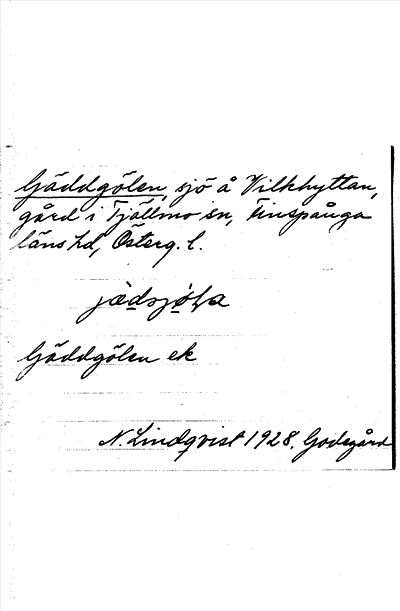 Gäddgölen, sjö å Vilkhyttan,
gård i Tjällmo sn, Finspånga
läns hd, Österg. l.
Gäddgölen ek
N. Lindqvist 1928. Godegård